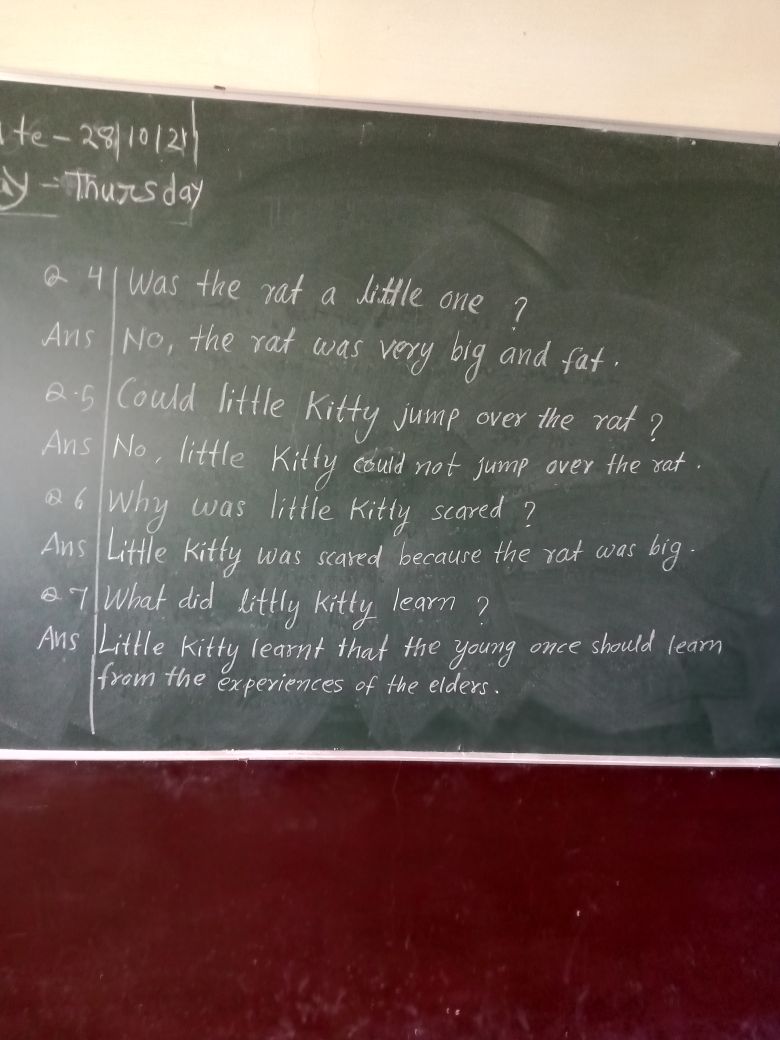 te - 28/10/21
ay - Thursday
Q 4 Was the rat a little one ?
Ans No, the rat was very big and fat.
Q.5 Could little Kitty jump over the rat ?
Ans No, little Kitty could not jump over the rat.
Q 6 Why was little Kitty scared ?
Ans Little Kitty was scared because the rat was big.
Q 7 What did littly Kitty learn ?
Ans Little Kitty learnt that the young once should learn
from the experiences of the elders.